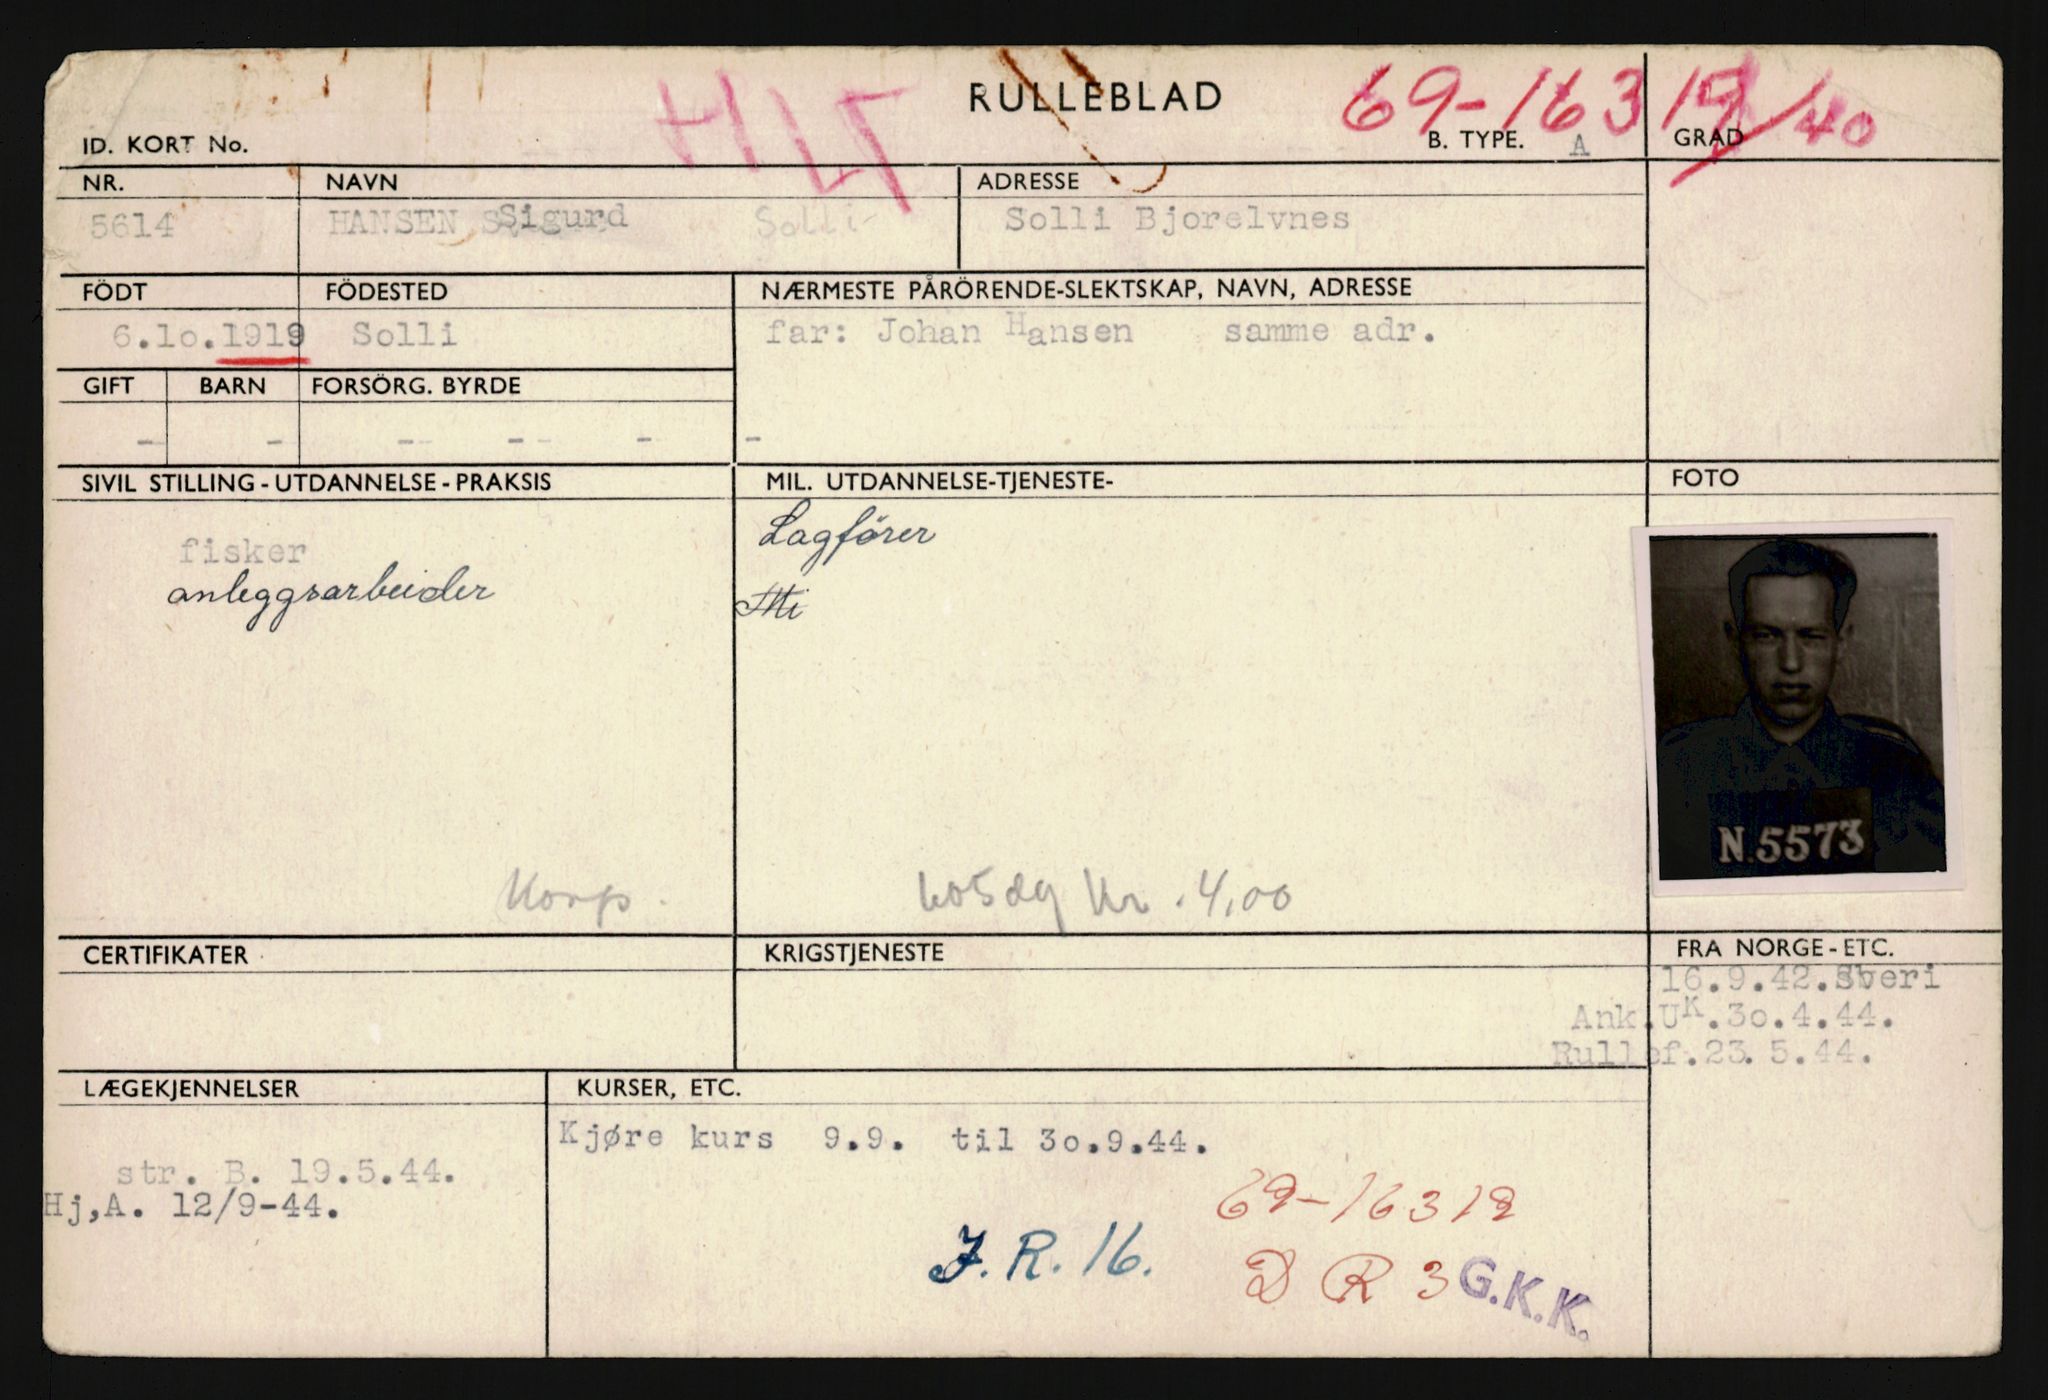 RULLEBLAD 69-16319/40
HLT
ID. KORT No. B. TYPE. A GRAD
NR. NAVN ADRESSE
5614 HANSEN Sigurd Solli Solli Bjorelvnes
FÖDT FÖDESTED NÆRMESTE PÅRÖRENDE-SLEKTSKAP, NAVN, ADRESSE
6.10.1919 Solli far: Johan Hansen samme adr.
GIFT BARN FORSÖRG. BYRDE
- - - - - -
SIVIL STILLING - UTDANNELSE - PRAKSIS MIL. UTDANNELSE-TJENESTE- FOTO
fisker Lagfører
anleggsarbeider Mi
N.5573
Korp. Kr. 4,00
CERTIFIKATER KRIGSTJENESTE FRA NORGE - ETC.
16.9.42.Sveri
Ank.UK.30.4.44.
Rullef.23.5.44.
LÆGEKJENNELSER KURSER, ETC.
Kjøre kurs 9.9. til 30.9.44.
str. B. 19.5.44.
Hj,A. 12/9-44.
69-16319
J.R. 16.
D R 3 G.K.K.